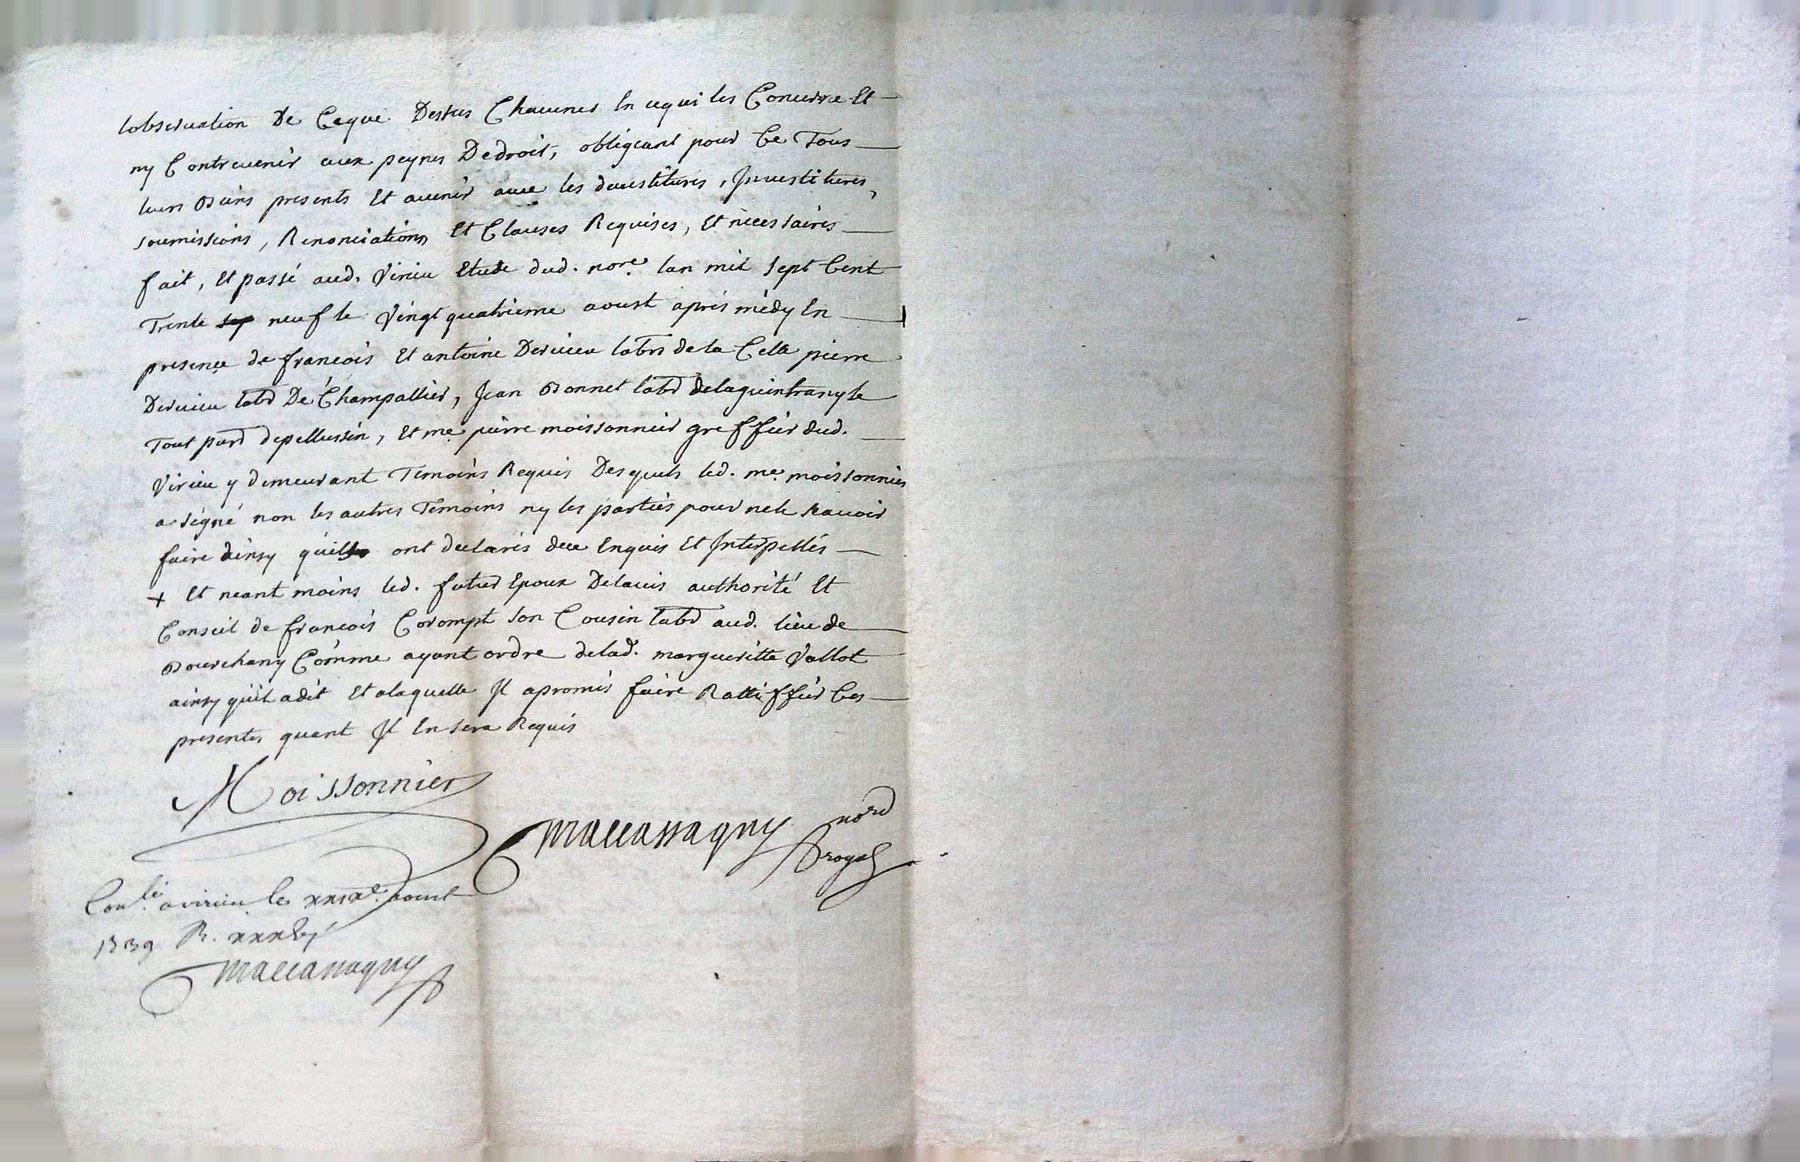 lobseruation De Ceque Dessus Chacunes En cequi les Concerne Et
ny Contreuenir aux peynes Dedroit, obligeant pour Ce Tous
leurs Biens presents Et auenir auec les deuestitures, Inuestitures,
soumissions, Renonciations Et Clauses Requises, Et nécessaires
fait, Et passé aud. Virieu Etude dud. nore. lan mil sept Cent
Trente neuf le Vingt quatrieme aoust aprés midy En
presence de francois Et antoine Deruieu labrs de la Celle pierre
Deruieu labr De Champallier, Jean Bonnet labr
Tout parr depellussin, Et me. pierre moissonnier greffier dud.
Virieu y demeurant Temoins Requis Desquels led. me. moissonnier
a signé non les autres Témoins ny les parties pour nele scauoir
faire ainsy quils ont declarés de ce Enquis Et Interpellés
+ Et neant moins led. futur Epoux Delauis authorité Et
Conseil de francois Corompt son Cousin labr aud. lieu de
Bourchany Comme ayant ordre delad. margueritte Vallot
ainsy quil adit Et alaquelle Il apromis faire Ratiffier Ces
presentes quant Il En sera Requis
Moissonnier
Maccassagny nore
royal
Conle. a virieu le xxixe. aoust
1739 R.
Maccassagny